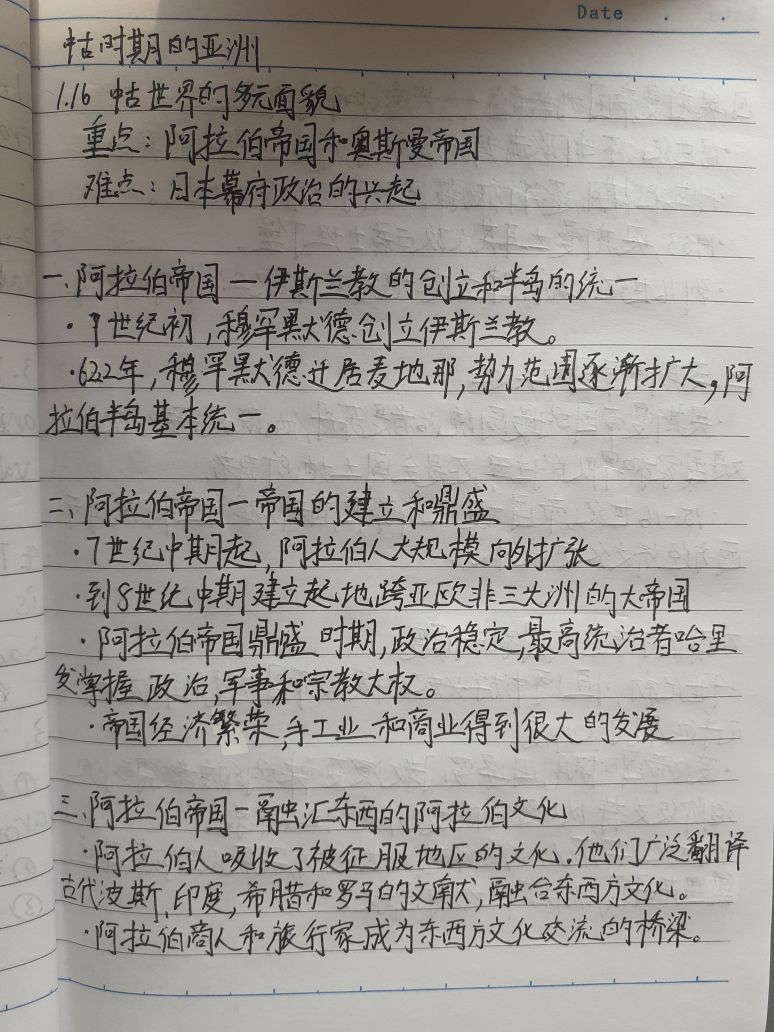 Date . .
中古时期的亚洲
1.16 中古世界的多元面貌
重点：阿拉伯帝国和奥斯曼帝国
难点：日本幕府政治的兴起
一、阿拉伯帝国—伊斯兰教的创立和半岛的统一
·7世纪初，穆罕默德创立伊斯兰教。
·622年，穆罕默德迁居麦地那，势力范围逐渐扩大，阿
拉伯半岛基本统一。
二、阿拉伯帝国—帝国的建立和鼎盛
·7世纪中期起，阿拉伯人大规模向外扩张
·到8世纪中期建立起地跨亚欧非三大洲的大帝国
·阿拉伯帝国鼎盛时期，政治稳定，最高统治者哈里
发掌握政治，军事和宗教大权。
·帝国经济繁荣，手工业和商业得到很大的发展
三、阿拉伯帝国—融汇东西的阿拉伯文化
·阿拉伯人吸收了被征服地区的文化．他们广泛翻译
古代波斯，印度，希腊和罗马的文献，融合东西方文化。
·阿拉伯商人和旅行家成为东西方文化交流的桥梁。